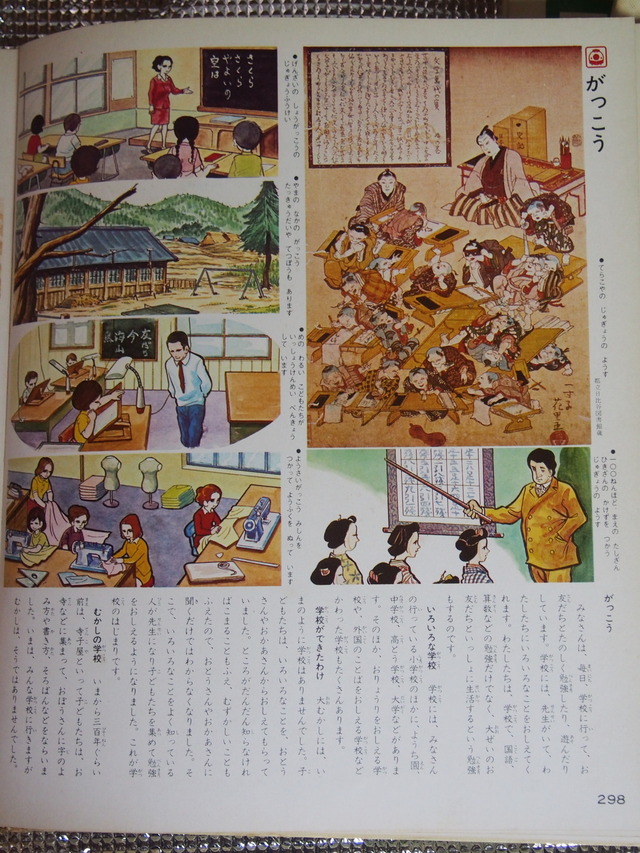 がっこう
●てらこやの じゅぎょうの ようす
花里
●一〇〇ねんほど まえの たしざん
ひきざんの かけずを つかう
じゅぎょうの ようす
●げんざいの しょうがっこうの
じゅぎょうふうけい
さくら
さくら
やよいの
空は
●やまの なかの がっこう
たっきゅうだいや てつぼうも あります
●めの わるい こどもたちが
いっしょうけんめい べんきょう
して います
●ようさいがっこう ミシンを
つかって ようふくを ぬって います
がっこう
みなさんは、毎日、学校に行って、お
友だちとたのしく勉強したり、遊んだり
しています。学校には、先生がいて、わ
たしたちにいろいろなことをおしえてく
れます。わたしたちは、学校で、国語、
算数などの勉強だけでなく、大ぜいのお
友だちといっしょに生活するという勉強
もするのです。
いろいろな学校 学校には、みなさん
の行っている小学校のほかに、ようち園、
中学校、高とう学校、大学などがありま
す。そのほか、おりょうりをおしえる学
校や、外国のことばをおしえる学校など
かわった学校もたくさんあります。
学校ができたわけ 大むかしには、い
まのように学校はありませんでした。子
どもたちは、いろいろなことを、おとう
さんやおかあさんからおしえてもらって
いました。ところがだんだん知らなけれ
ばこまることもふえ、むずかしいことも
ふえたので、おとうさんやおかあさんに
聞くだけではわからなくなりました。そ
こで、いろいろなことをよく知っている
人が先生になり子どもたちを集めて勉強
をおしえるようになりました。これが学
校のはじまりです。
むかしの学校 いまから三百年くらい
前は、寺子屋といって子どもたちは、お
寺などに集まって、おぼうさんに字のよ
み方や書き方、そろばんなどをならいま
した。いまは、みんな学校に行きますが
むかしは、そうではありませんでした。
298